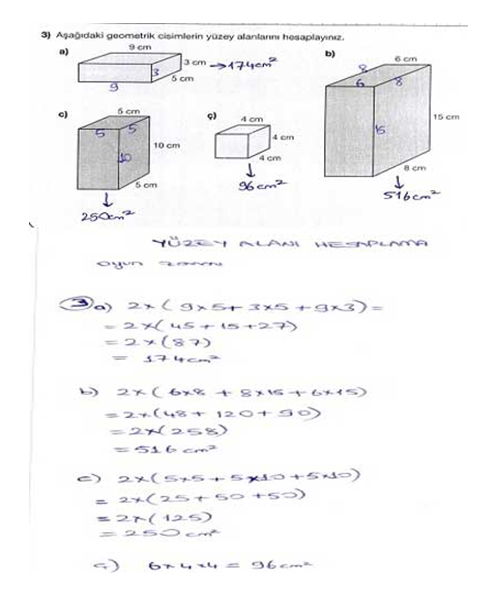 3) Aşağıdaki geometrik cisimlerin yüzey alanlarını hesaplayınız.
a)
9 cm
3 cm → 174cm²
3
5 cm
9
b)
6 cm
8
6 8
15
15 cm
8 cm
516cm²
c)
5 cm
5 5
10
10 cm
5 cm
250cm²
ç)
4 cm
4 cm
4 cm
96cm²
YÜZEY ALANI HESAPLAMA
oyun zamanı
3 a) 2x(9x5+3x5+9x3)=
= 2x(45+15+27)
= 2x(87)
= 174cm²
b) 2x(6x8+8x15+6x15)
=2x(48+120+90)
=2x(258)
=516 cm²
c) 2x(5x5+5x10+5x10)
= 2x(25+50+50)
=2x(125)
=250 cm²
ç) 6x4x4=96cm²